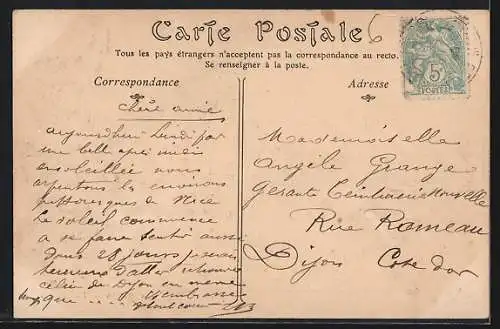 Carte Postale
6
Tous les pays étrangers n'acceptent pas la correspondance au recto.
Se renseigner à la poste.
5
POSTES
Correspondance
Adresse
Chère amie
aujourd'hui Lundi par
une belle après midi
ensoleillée nous
arpentons les environs
pittoresques de Nice
Le soleil commence
a se faire sentir aussi
Dans 28 jours je serai
heureuse d'aller retrouver
celui de Dijon en meme
que
t'embrasse
Mademoiselle
Angèle Grange
Gerante Teinturerie Nouvelle
Rue Rameau
Dijon Cote d'or